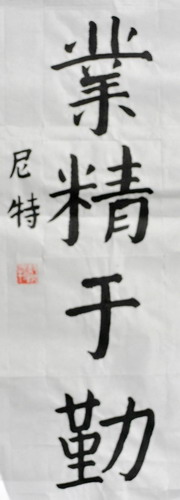 業精于勤
尼特